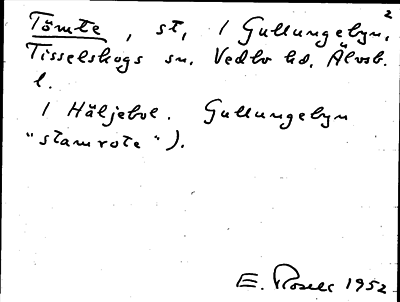 2
Tömte, st, / Gullungebyn,
Tisselskogs sn. Vedbo hd. Älvsb.
l.
/ Häljebol. Gullungebyn
"stamrote").
E. Rosell 1952